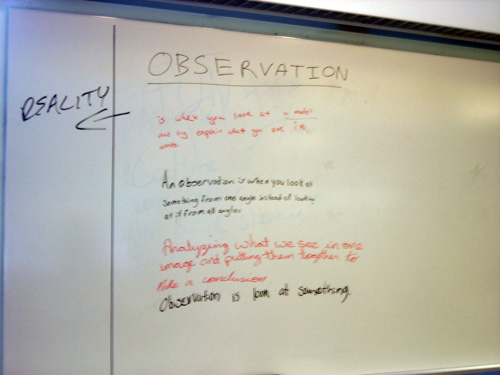 OBSERVATION
REALITY
is when you look at a model
and try explain what you see in
words
An observation is when you look at
something from one angle instead of looking
at it from all angles
Analyzing what we see in one
image and putting them together to
a conclusion
Observation is look at something